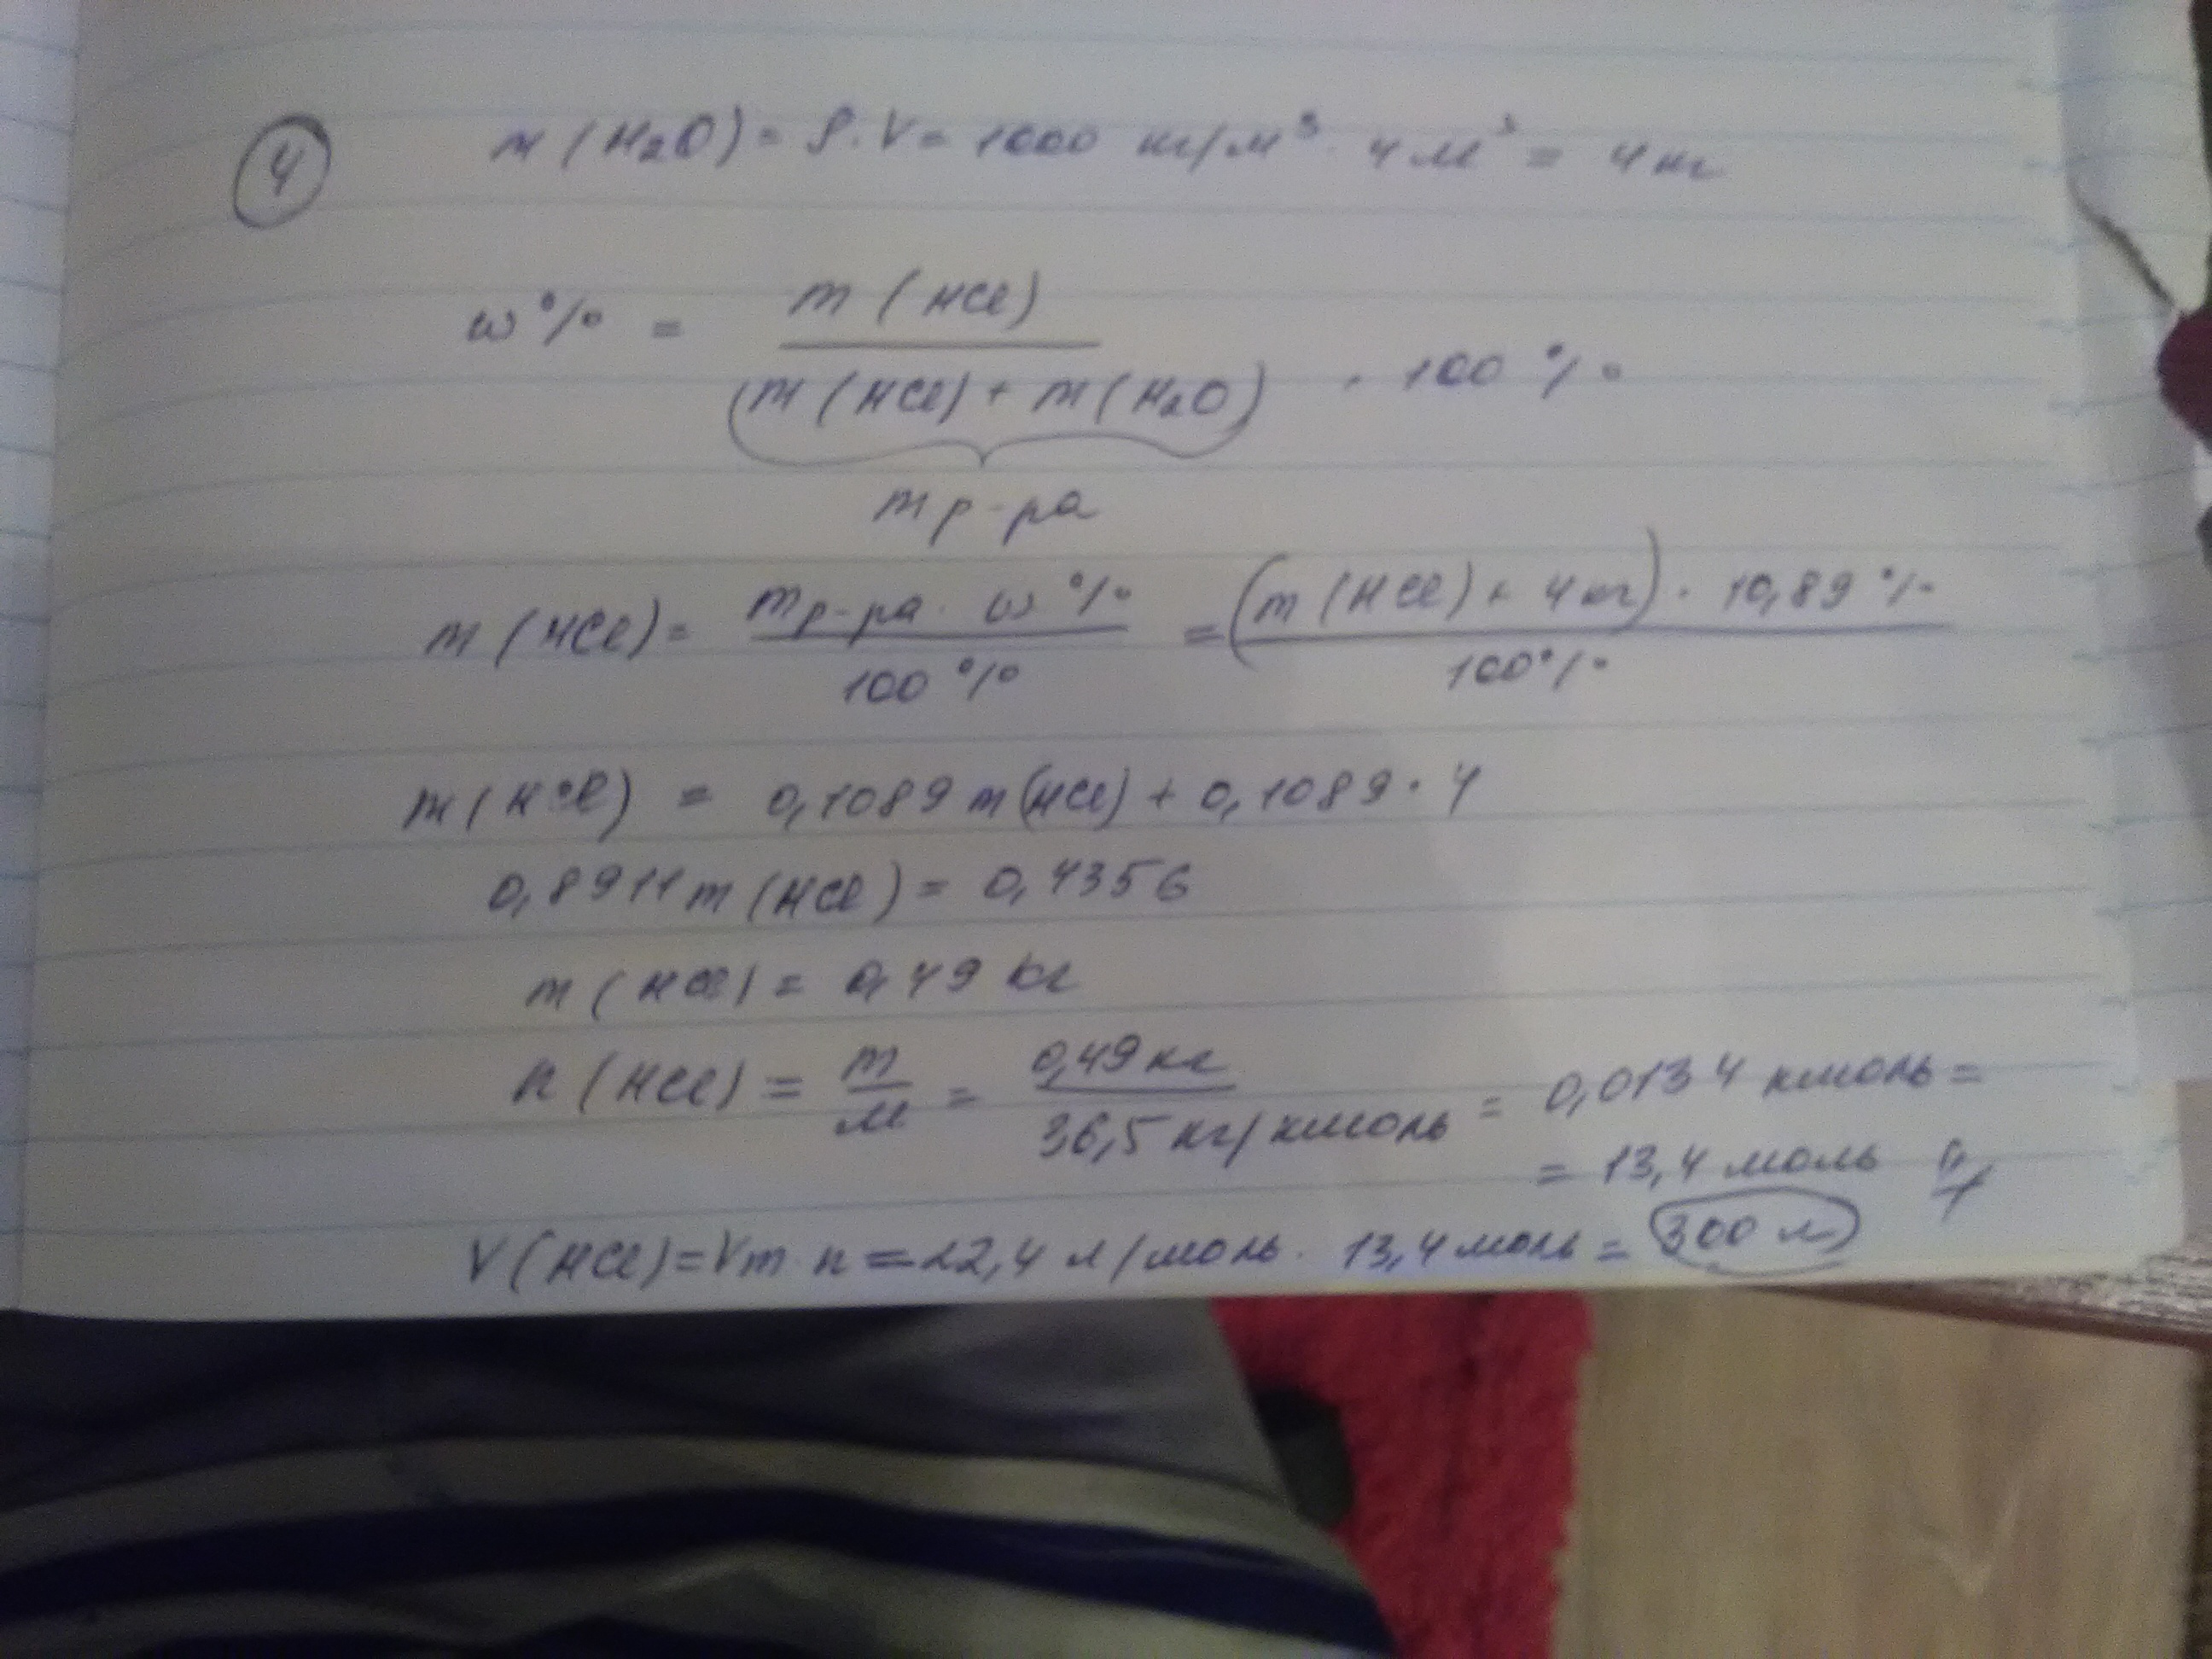 4
m (H2O) = ρ · V = 1000 кг/м³ · 4 м³ = 4 кг
ω % = m (HCl) / (m (HCl) + m (H2O)) · 100 %
m р-ра
m (HCl) = m р-ра · ω % / 100 % = (m (HCl) + 4 кг) · 10,89 % / 100 %
m (HCl) = 0,1089 m (HCl) + 0,1089 · 4
0,8911 m (HCl) = 0,4356
m (HCl) = 0,49 кг
n (HCl) = m / M = 0,49 кг / 36,5 кг/кмоль = 0,0134 кмоль =
= 13,4 моль
V (HCl) = Vm · n = 22,4 л/моль · 13,4 моль = 300 л